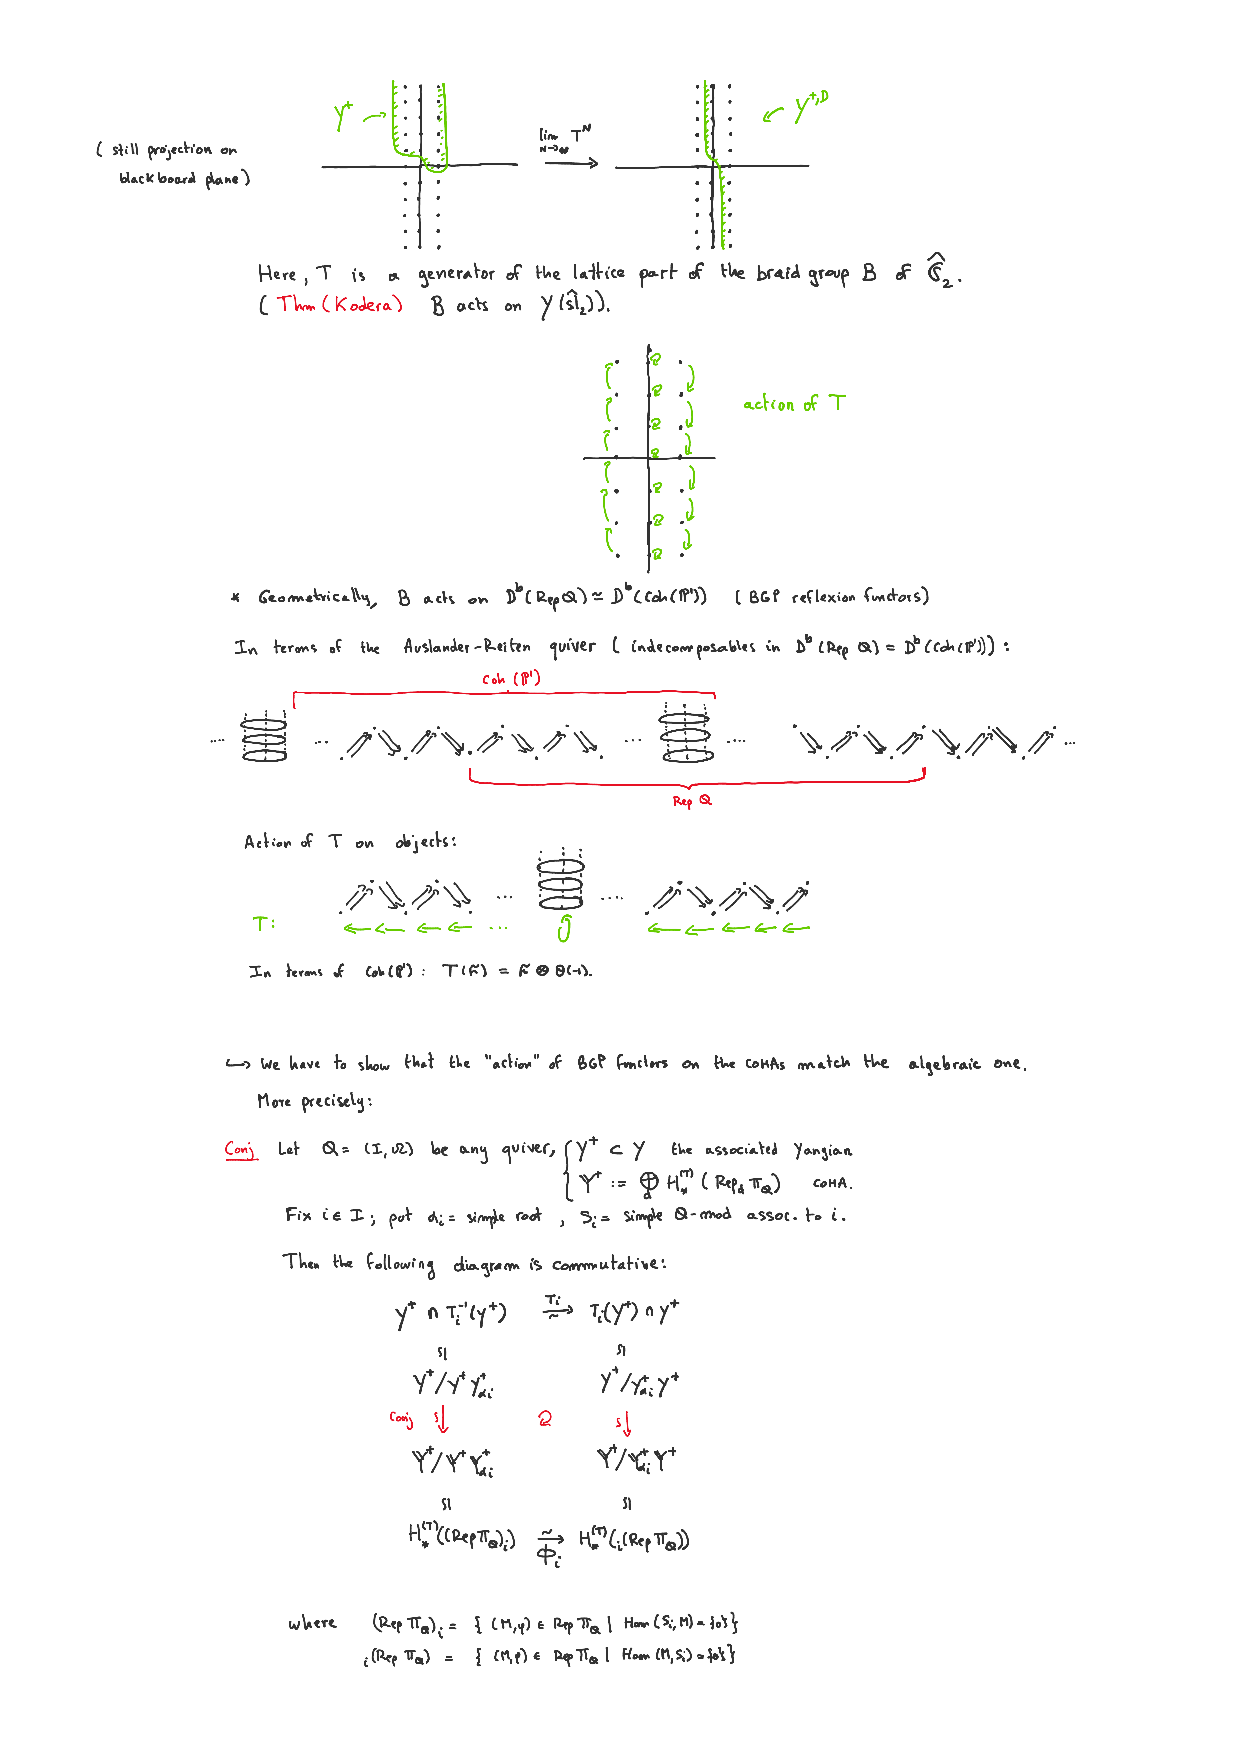 Y⁺
lim T^N
N→∞
Y^{+,D}
( still projection on
blackboard plane )
Here, T is a generator of the lattice part of the braid group B of Ŝ₂.
( Thm (Kodera) B acts on Y(ŝl₂)).
action of T
* Geometrically, B acts on D^b(Rep Q) ≃ D^b(Coh(P¹)) ( BGP reflexion functors)
In terms of the Auslander-Reiten quiver ( indecomposables in D^b(Rep Q) = D^b(Coh(P¹))) :
Coh (P¹)
... ... ... .... ...
Rep Q
Action of T on objects:
... ....
T: ...
In terms of Coh(P¹) : T(F) = F ⊗ O(-1).
↪ We have to show that the "action" of BGP functors on the COHAs match the algebraic one.
More precisely:
Conj Let Q = (I, Ω) be any quiver, { Y⁺ ⊂ Y the associated Yangian
𝕐⁺ := ⊕_d H_*^{(T)} ( Rep_d Π_Q ) COHA.
Fix i ∈ I ; put α_i = simple root , S_i = simple Q-mod assoc. to i.
Then the following diagram is commutative:
Y⁺ ∩ T_i^{-1}(Y⁺) →^{T_i}_{~} T_i(Y⁺) ∩ Y⁺
≀| ≀|
Y⁺/Y⁺Y⁺_{α_i} Y⁺/Y⁺_{α_i}Y⁺
Conj ≀↓ ↻ ≀↓
𝕐⁺/𝕐⁺𝕐⁺_{α_i} 𝕐⁺/𝕐⁺_{α_i}𝕐⁺
≀| ≀|
H_*^{(T)}((Rep Π_Q)_i) →^{~}_{Φ_i} H_*^{(T)}(_i(Rep Π_Q))
where (Rep Π_Q)_i = { (M,φ) ∈ Rep Π_Q | Hom (S_i, M) = {0} }
_i(Rep Π_Q) = { (M,φ) ∈ Rep Π_Q | Hom (M, S_i) = {0} }